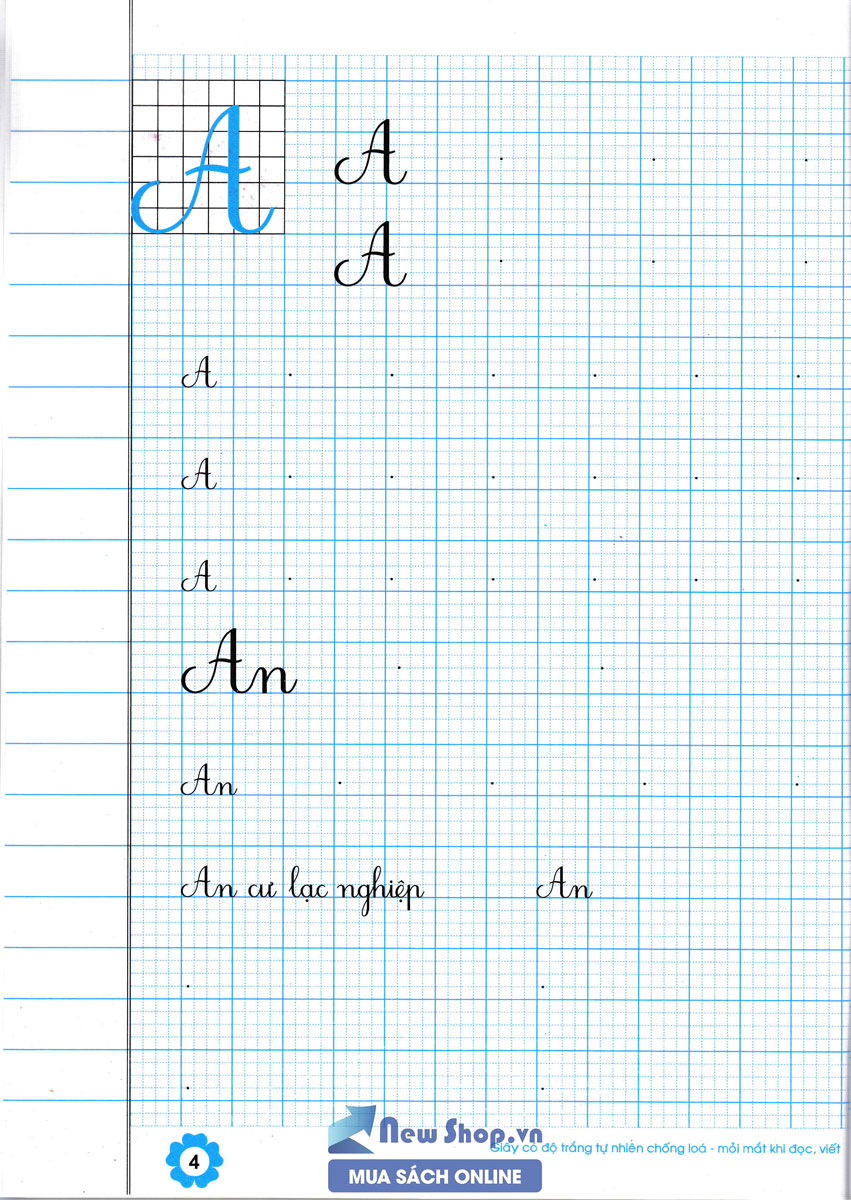 A A
A
A
A
A
An
An
An cư lạc nghiệp An
4
New Shop.vn
Giấy có độ trắng tự nhiên chống loá - mỏi mắt khi đọc, viết
MUA SÁCH ONLINE